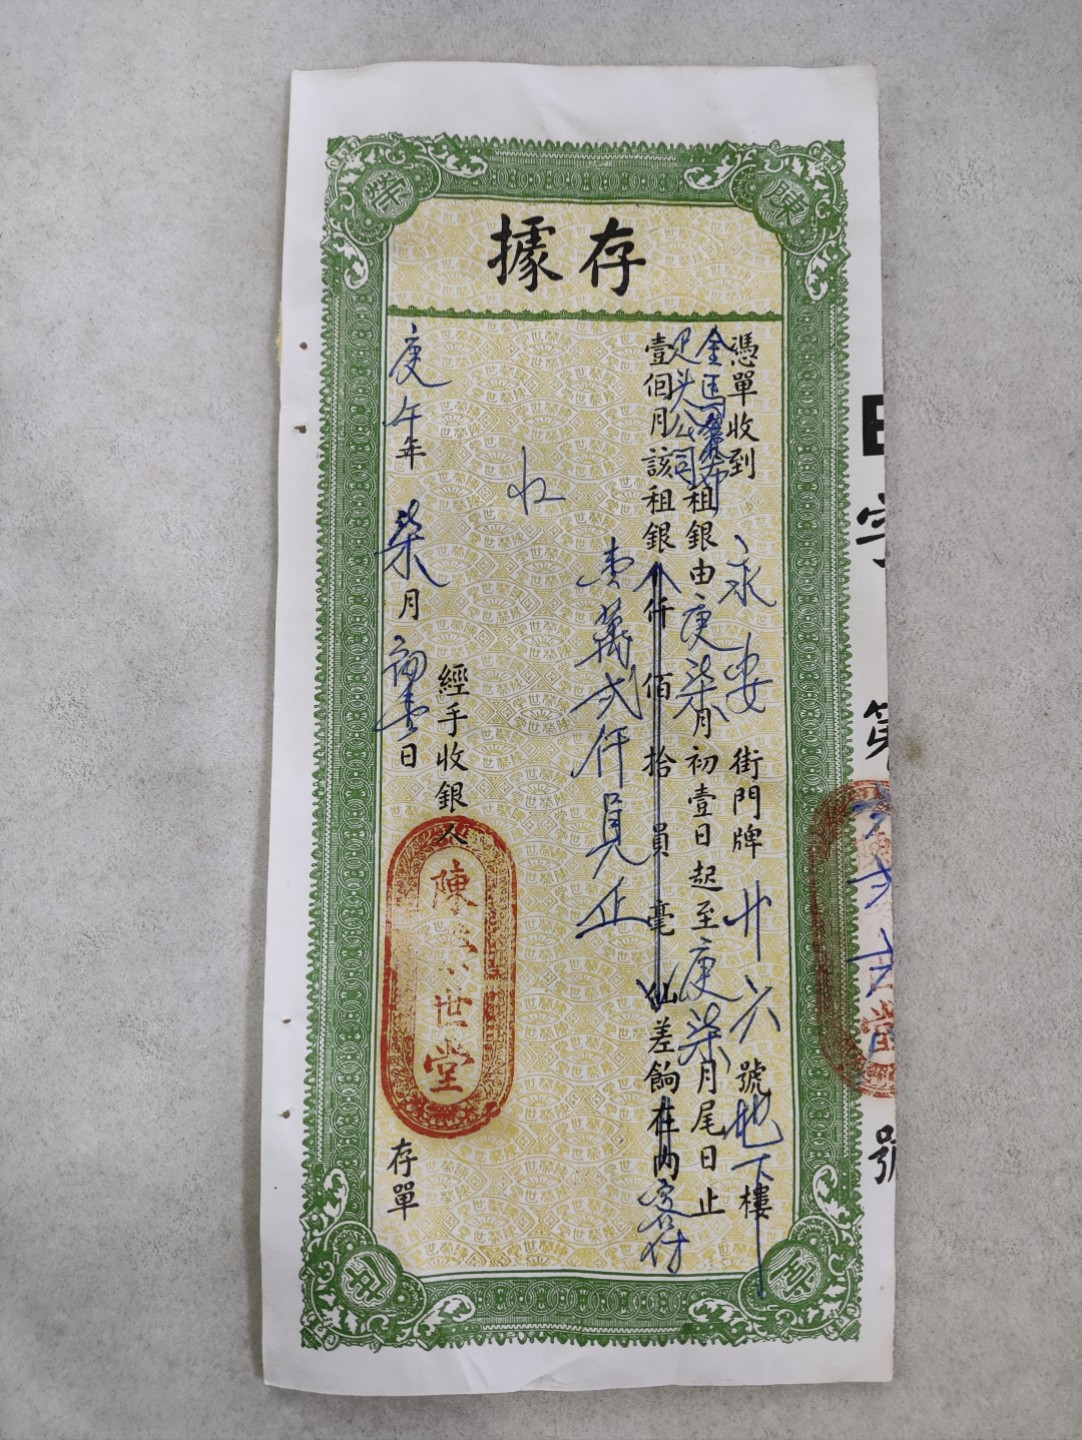 存據
憑單收到 永安 街門牌 廿六 號地下樓
金馬 租銀由庚柒月初壹日起至庚柒月尾日止
足头公司
壹個月該租銀 仟 佰 拾 員 毫 仙差餉在內客付
壹萬弍仟員正
收
經手收銀人
陳 世堂
庚午年 柒月初壹日
存單
字 第
號
陳
榮
世